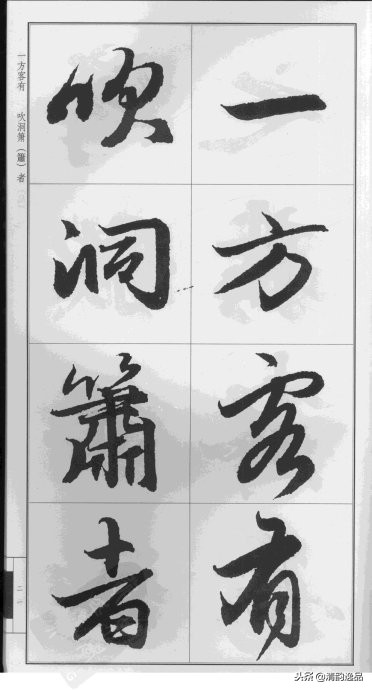 一方客有
吹洞箫者
一方客有 吹洞箫（簫）者
二一
头条@清韵逸品